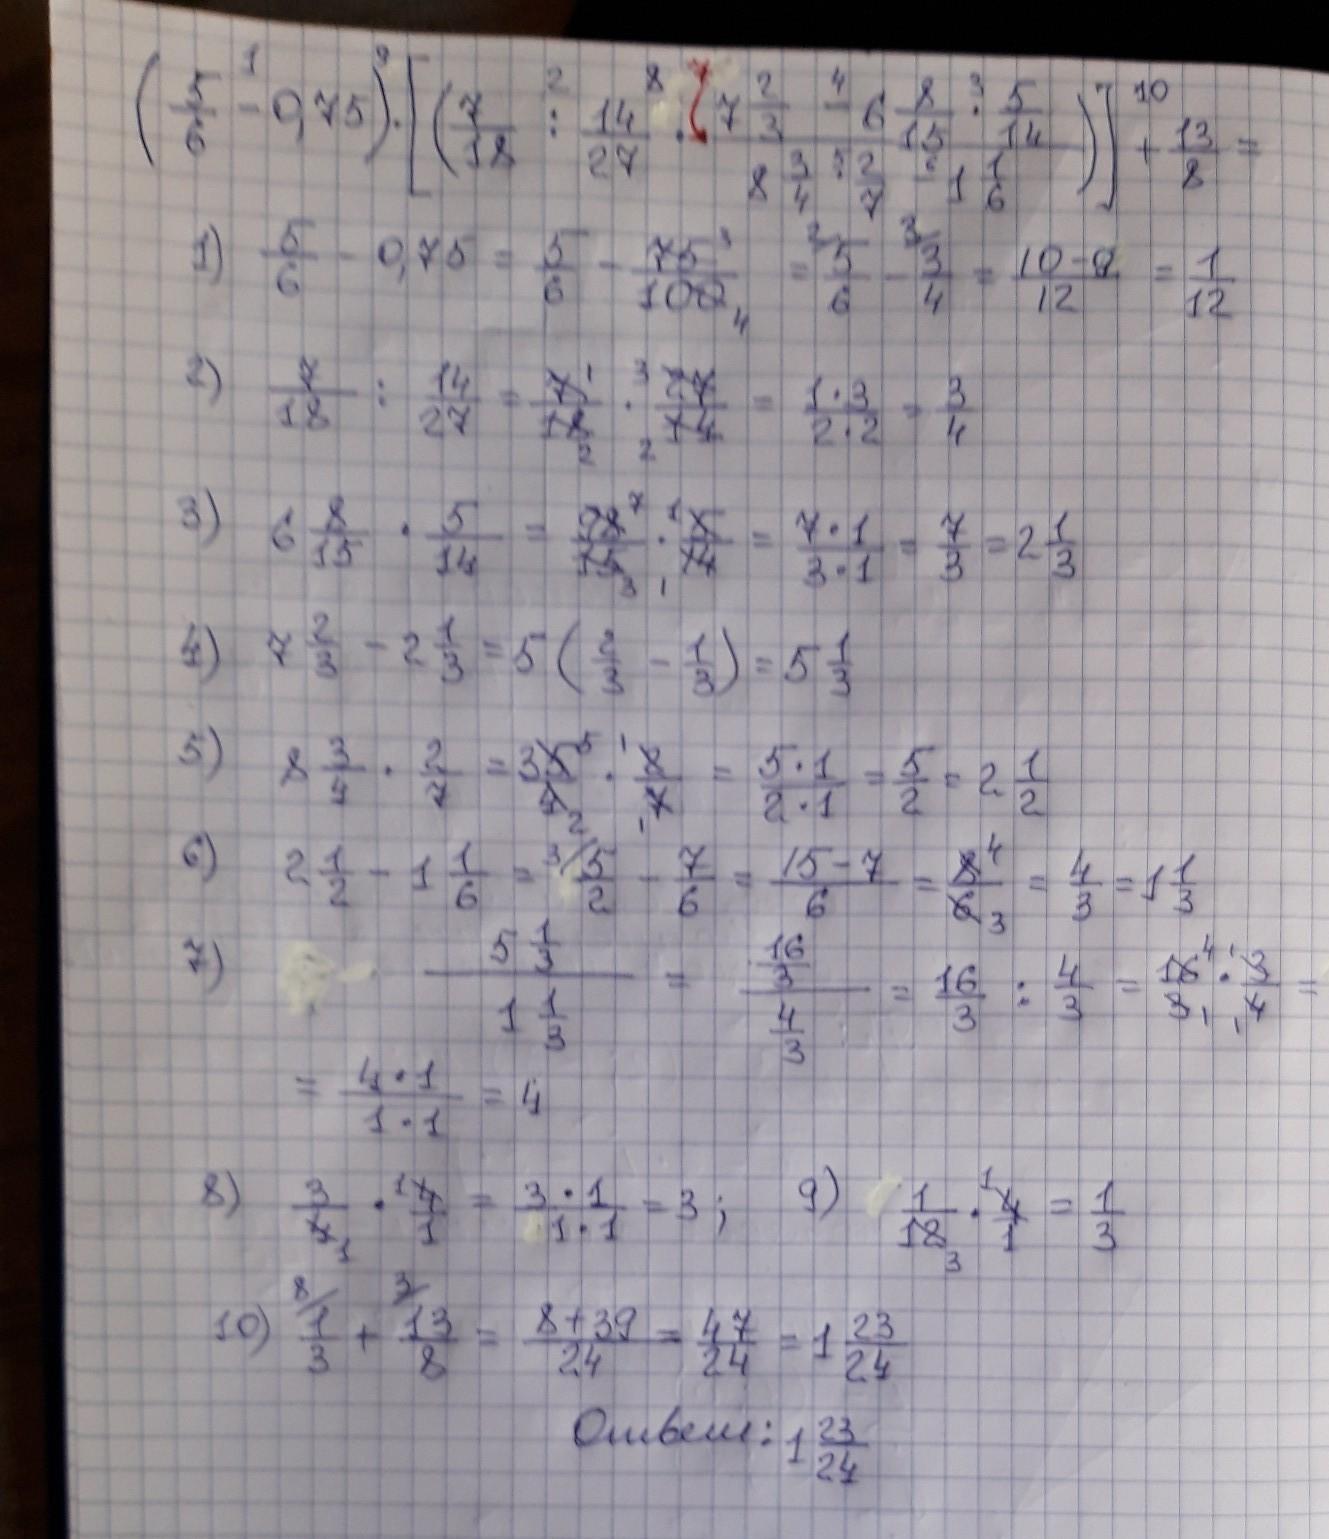 (5/6 - 0,75) · [(7/18 : 14/27 · (7 2/3 - 6 8/15 · 5/14)/(8 3/4 · 2/7 - 1 1/6))] + 13/8 =
1) 5/6 - 0,75 = 5/6 - 75/100 = 5/6 - 3/4 = (10-9)/12 = 1/12
2) 7/18 : 14/27 = 7/18 · 27/14 = (1·3)/(2·2) = 3/4
3) 6 8/15 · 5/14 = 98/15 · 5/14 = (7·1)/(3·1) = 7/3 = 2 1/3
4) 7 2/3 - 2 1/3 = 5 (2/3 - 1/3) = 5 1/3
5) 8 3/4 · 2/7 = 35/4 · 2/7 = (5·1)/(2·1) = 5/2 = 2 1/2
6) 2 1/2 - 1 1/6 = 5/2 - 7/6 = (15-7)/6 = 8/6 = 4/3 = 1 1/3
7) (5 1/3)/(1 1/3) = (16/3)/(4/3) = 16/3 : 4/3 = 16/3 · 3/4 =
= (4·1)/(1·1) = 4
8) 3/4 · 4/1 = (3·1)/(1·1) = 3; 9) 1/12 · 4/1 = 1/3
10) 1/3 + 13/8 = (8+39)/24 = 47/24 = 1 23/24
Ответ: 1 23/24